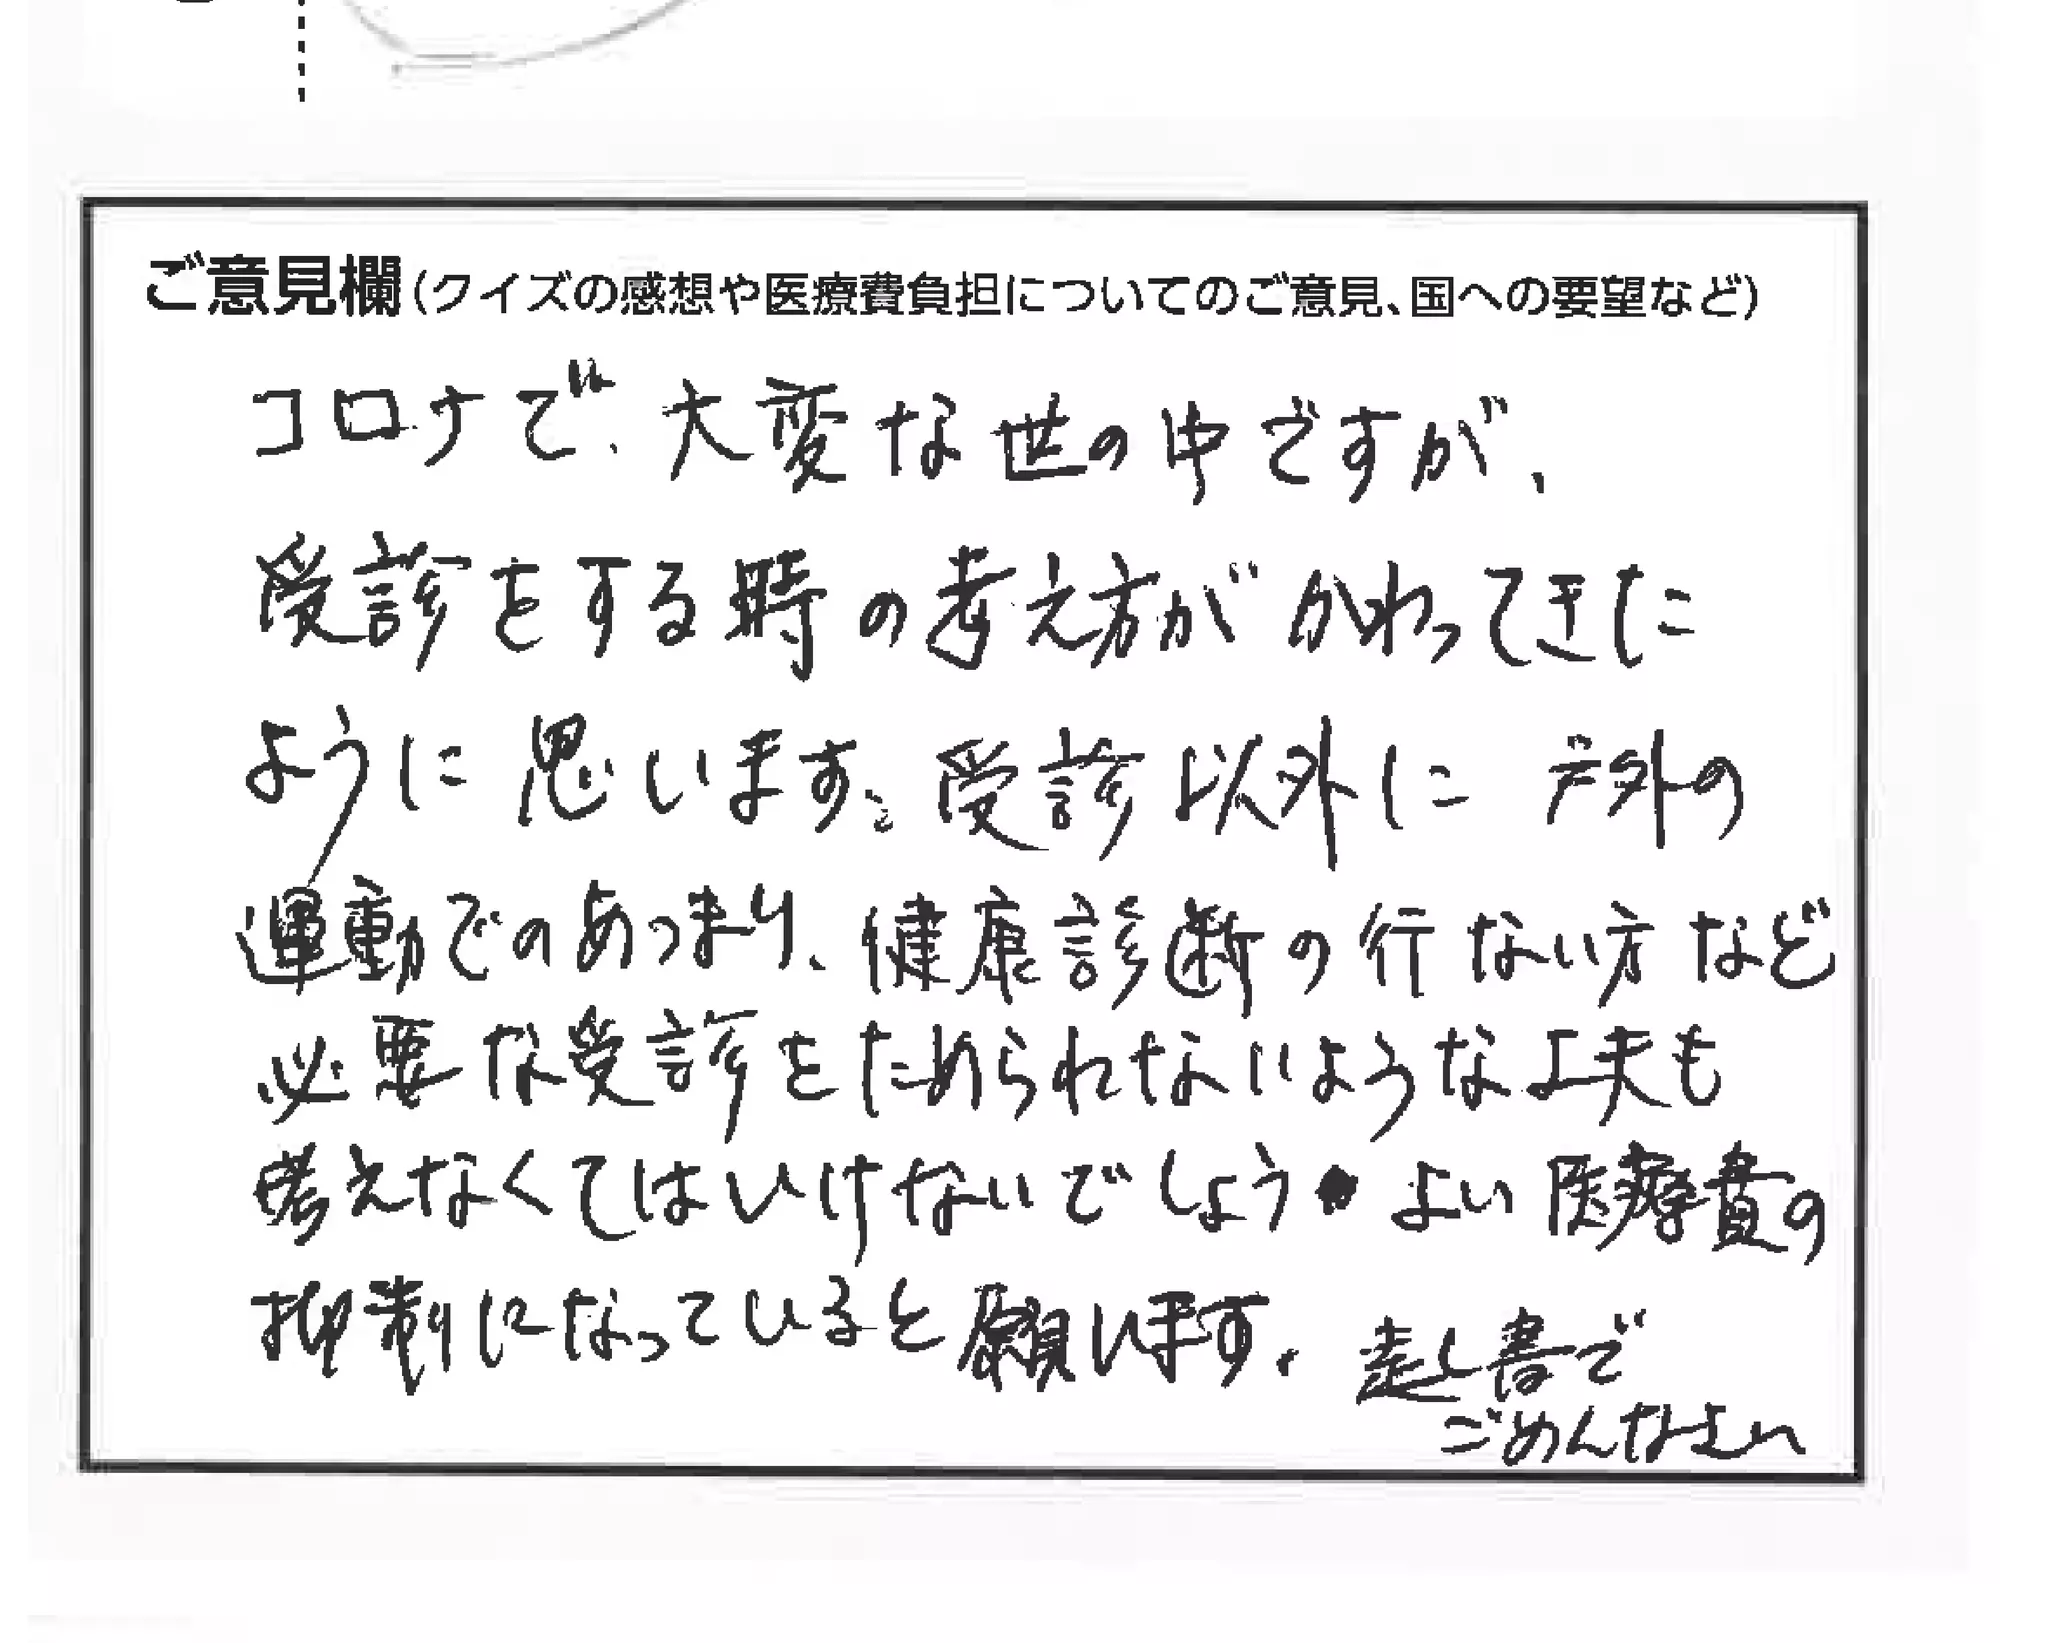 ご意見欄(クイズの感想や医療費負担についてのご意見、国への要望など)
コロナで、大変な世の中ですが、
受診をする時の考え方がかわってきた
ように思います。受診以外に戸外の
運動でのあつまり、健康診断の行ない方など
必要な受診をためられないような工夫も
考えなくてはいけないでしょう・よい医療費の
抑制になっていると願います。走し書で
ごめんなさい